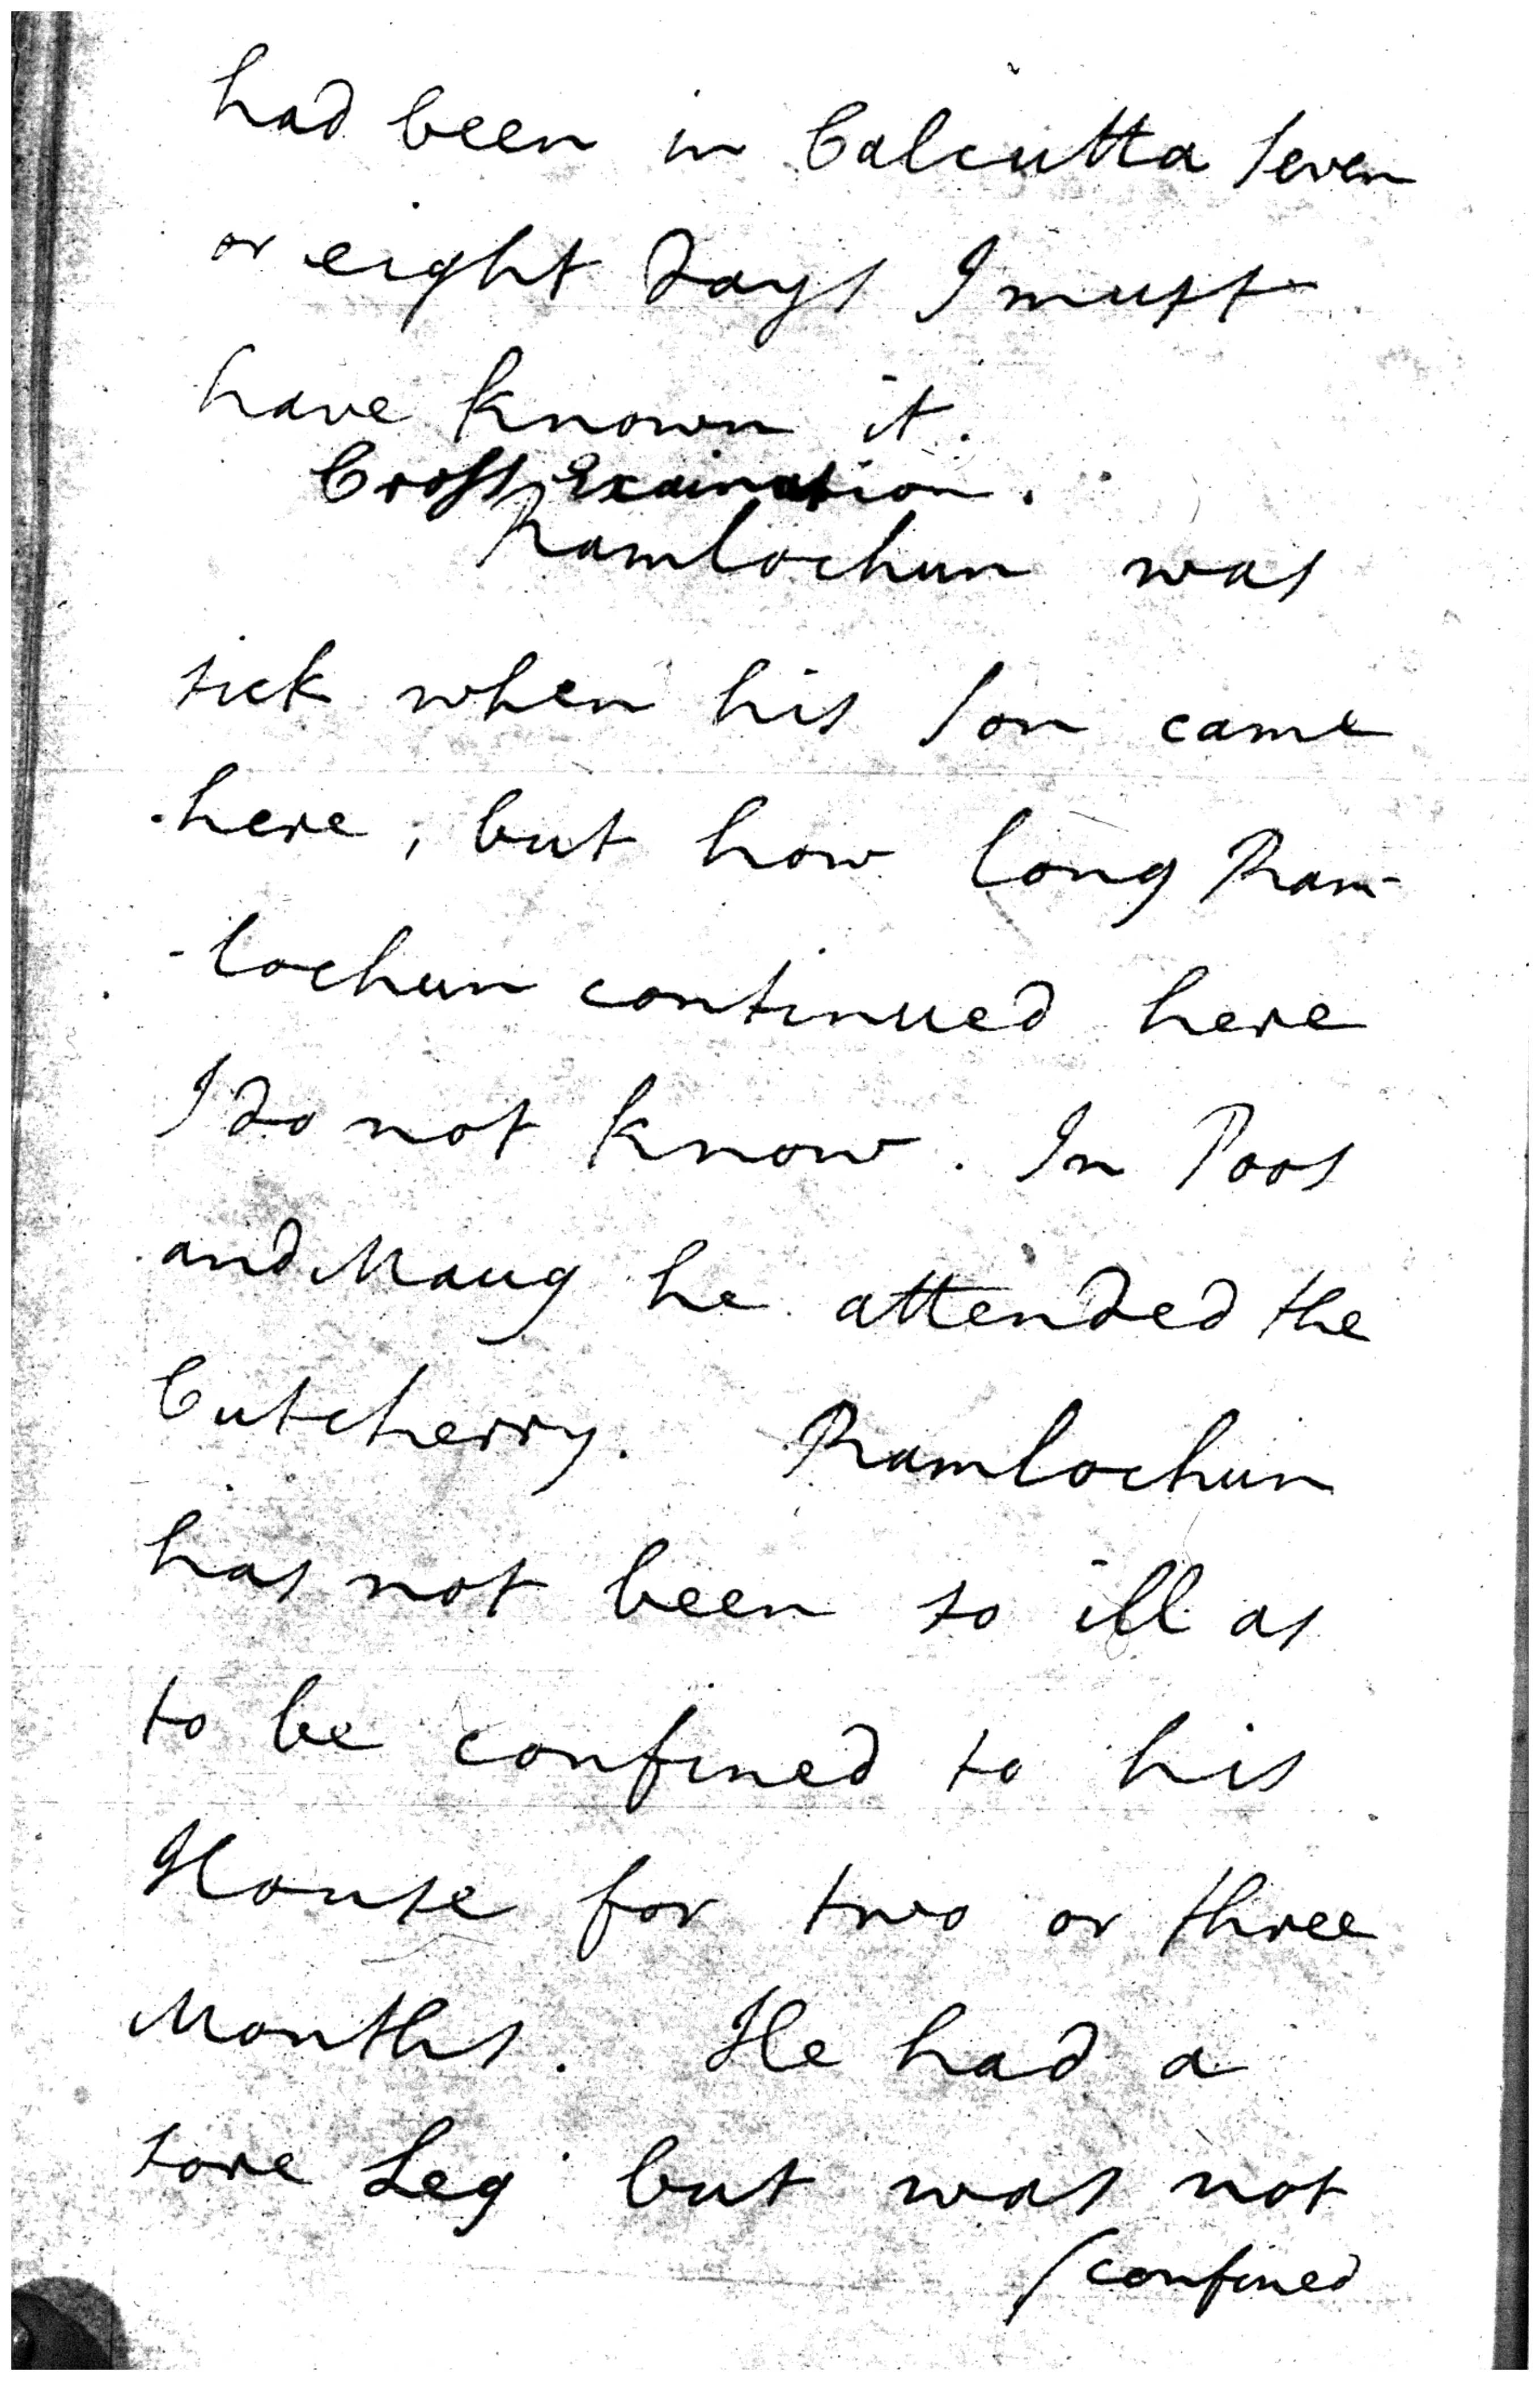 had been in Calcutta seven
or eight Days I must
have known it.
Cross Exaination.
Ramlochun was
sick when his Son came
here, but how long Ram-
-lochun continued here
I do not know. In Poos
and Maug he attended the
Cutcherry. Ramlochun
has not been so ill as
to be confined to his
House for two or three
Months. He had a
sore Leg but was not
/confined